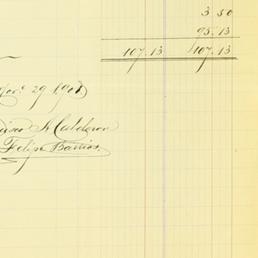 3 50
95.13
107.13 107.13
29
Calderon
Felipe Barrios.